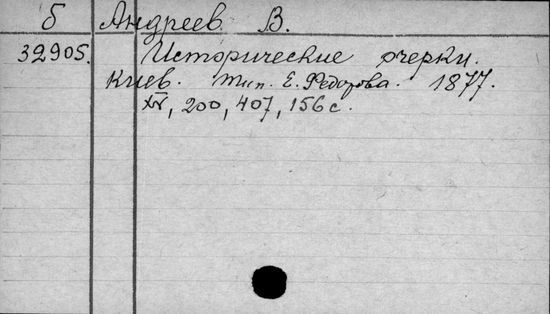 б Андреев В.
32905. Исторические очерки.
Киев. Тип. Е. Федорова. 1877.
XV, 200, 407, 156 с.